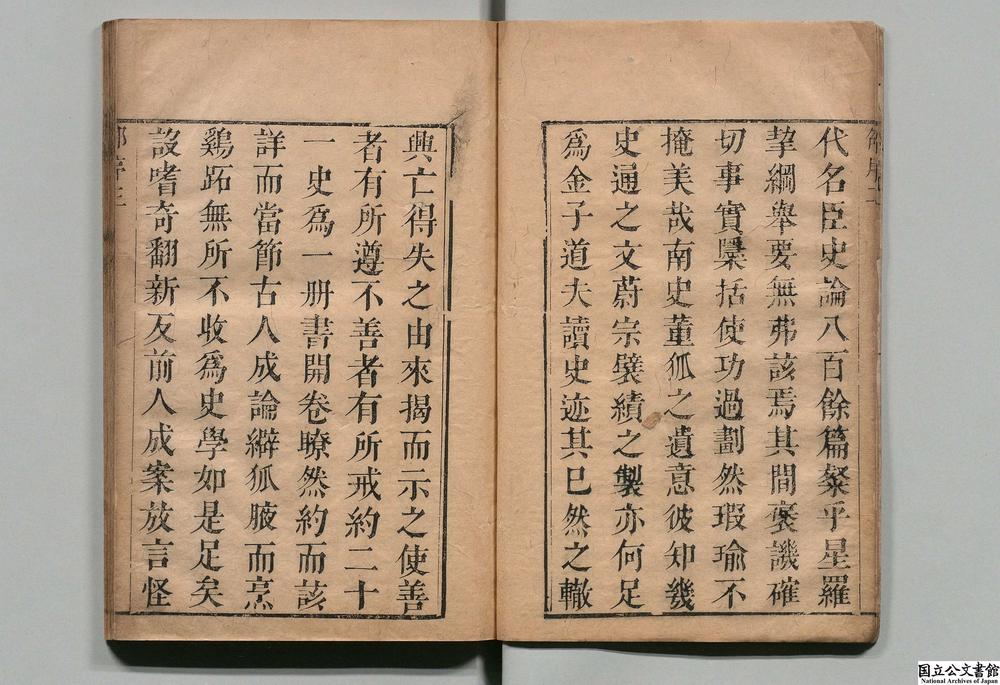 代名臣史論八百餘篇粲乎星羅
挈綱舉要無弗該焉其間褒譏確
切事實檃括使功過劃然瑕瑜不
掩美哉南史董狐之遺意彼知幾
史通之文蔚宗襞績之製亦何足
為金子道夫讀史迹其已然之轍
興亡得失之由來揭而示之使善
者有所遵不善者有所戒約二十
一史爲一册書開卷瞭然約而該
詳而當節古人成論緝狐腋而烹
鷄跖無所不收爲史學如是足矣
設嗜奇翻新反前人成案放言怪
国立公文書館
National Archives of Japan